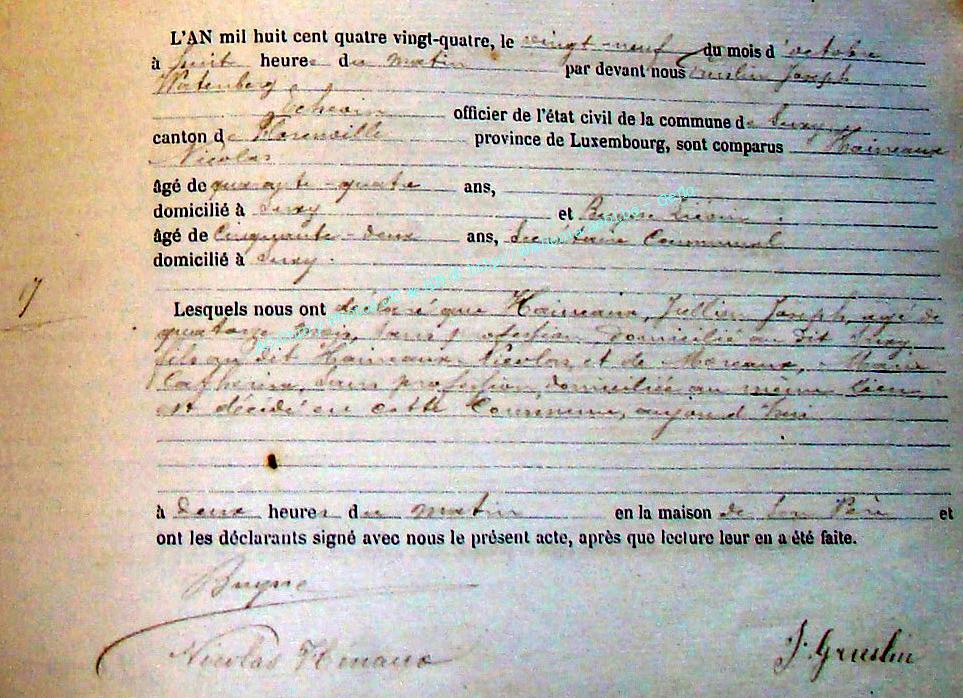 L'AN mil huit cent quatre vingt-quatre, le vingt-neuf du mois d'octobre
à huit heures du matin par devant nous Gruslin Joseph
Echevin officier de l'état civil de la commune de Suxy
canton de Florenville province de Luxembourg, sont comparus Hainaux
Nicolas
âgé de quarante-quatre ans,
domicilié à Suxy et
âgé de Cinquante-deux ans, Secrétaire Communal
domicilié à Suxy.
17
Lesquels nous ont déclaré que Hainaux, Jullien Joseph, agé de
quatorze mois, sans profession domicilié au dit Suxy
fils du dit Hainaux Nicolas et de Moreaux, Marie
Catherine, sans profession, domiciliée au même lieu,
est décédé en cette Commune, aujourd'hui
à deux heures du matin en la maison de son Père et
ont les déclarants signé avec nous le présent acte, après que lecture leur en a été faite.
Nicolas Hinaux
J. Gruslin